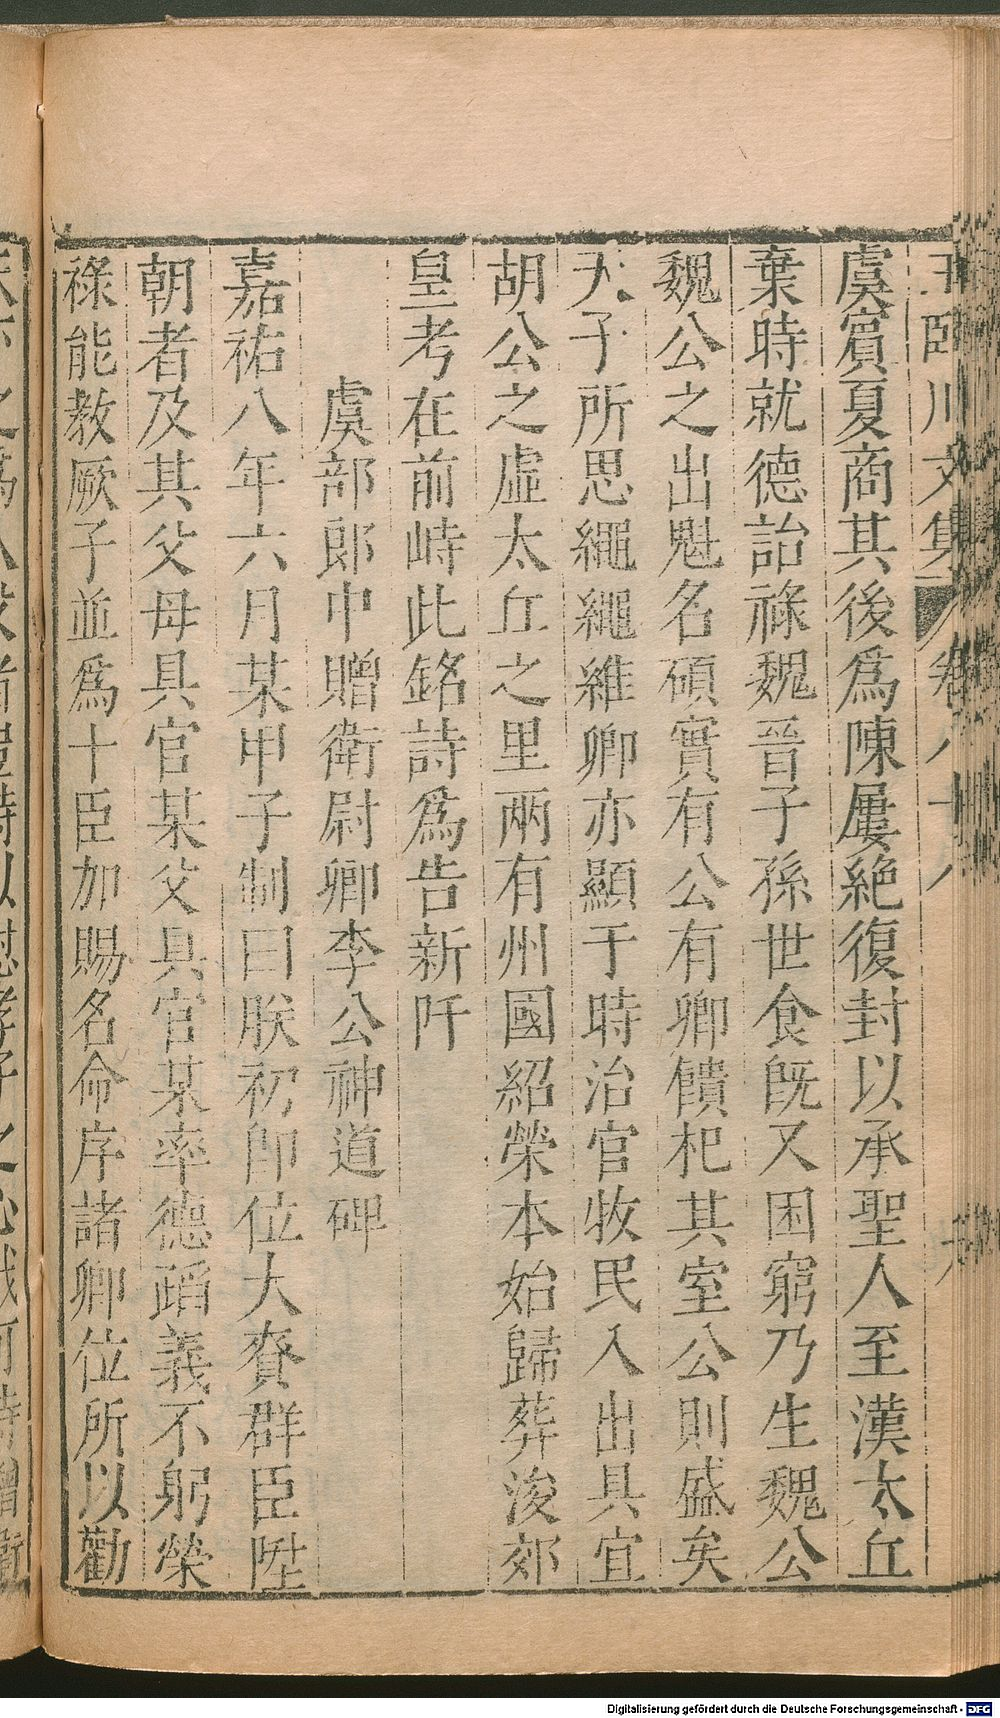 王臨川文集 卷八十八
虞賓夏商其後爲陳屢絶復封以承聖人至漢太丘
棄時就德詒祿魏晉子孫世食旣又困窮乃生魏公
魏公之出魁名碩實有公有卿饋杞其室公則盛矣
天子所思繩繩維卿亦顯于時治官牧民入出具宜
胡公之虛太丘之里兩有州國紹榮本始歸葬浚郊
皇考在前峙此銘詩爲告新阡
虞部郎中贈衛尉卿李公神道碑
嘉祐八年六月某甲子制曰朕初卽位大賚群臣陞
朝者及其父母具官某父具官某率德蹈義不躬榮
祿能教厥子並爲才臣加賜名命序諸卿位所以勸
Digitalisierung gefördert durch die Deutsche Forschungsgemeinschaft - DFG